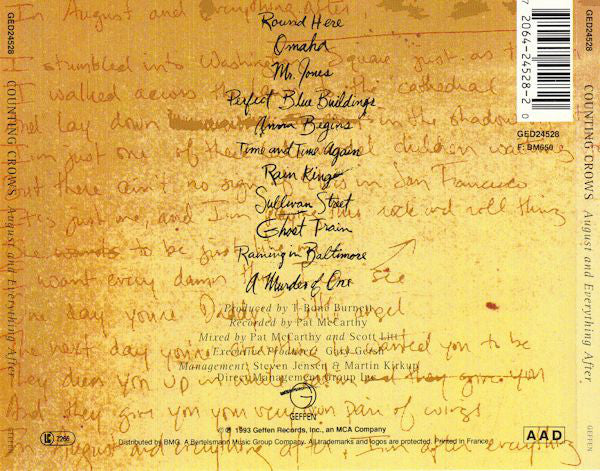 GED24528
COUNTING CROWS August and Everything After
GEFFEN
In August and everything after
Round Here
Omaha
Mr. Jones
Perfect Blue Buildings
Anna Begins
Time and Time Again
Rain King
Sullivan Street
Ghost Train
Raining in Baltimore
A Murder of One
I stumbled into Washington Square just as
I walked across the cathedral
lay down in the shadow
I one of the children
but there ain't no sign of in San Francisco
just me and I'm this rock and roll thing
to be just
want every damn thing see
say you're Daddy's angel
The next day you're wanted you to be
dress you up in and they give you
And they give you your very own pair of wings
In August and everything after, I'm after everything
Produced by T-Bone Burnett
Recorded by Pat McCarthy
Mixed by Pat McCarthy and Scott Litt
Executive Producer: Gary Gersh
Management: Steven Jensen & Martin Kirkup
Direct Management Group Inc
GEFFEN
℗ © 1993 Geffen Records, Inc., an MCA Company
Distributed by BMG. A Bertelsmann Music Group Company. All trademarks and logos are protected. Printed in France.
LC 7266
7 2064-24528-2 0
GED24528
F: BM650
AAD
GED24528
COUNTING CROWS August and Everything After
GEFFEN